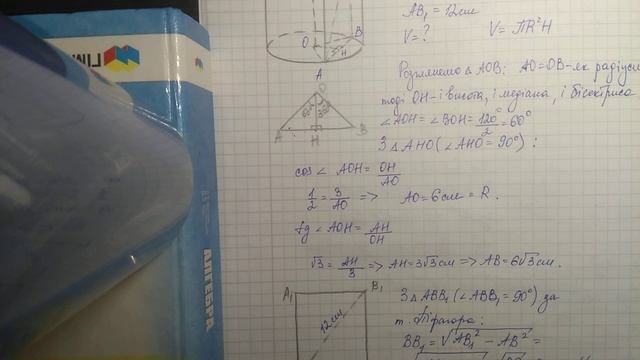 AB₁ = 12см
V = ? V = ПR²H
O
B
H
A
Розглянемо △ AOB: AO=OB-як радіуси
тоді OH-і висота, і медіана, і бісектриса
∠AOH = ∠BOH = 120°/2 = 60°
З △ AHO (∠AHO = 90°):
O
A H B
cos∠ AOH = OH/AO
1/2 = 3/AO => AO = 6см = R.
tg∠ AOH = AH/OH
√3 = AH/3 => AH = 3√3см => AB = 6√3см.
A₁ B₁
12см
З △ ABB₁ (∠ABB₁ = 90°) за
т. Піфагора:
BB₁ = √AB₁² - AB² =
АЛГЕБРА